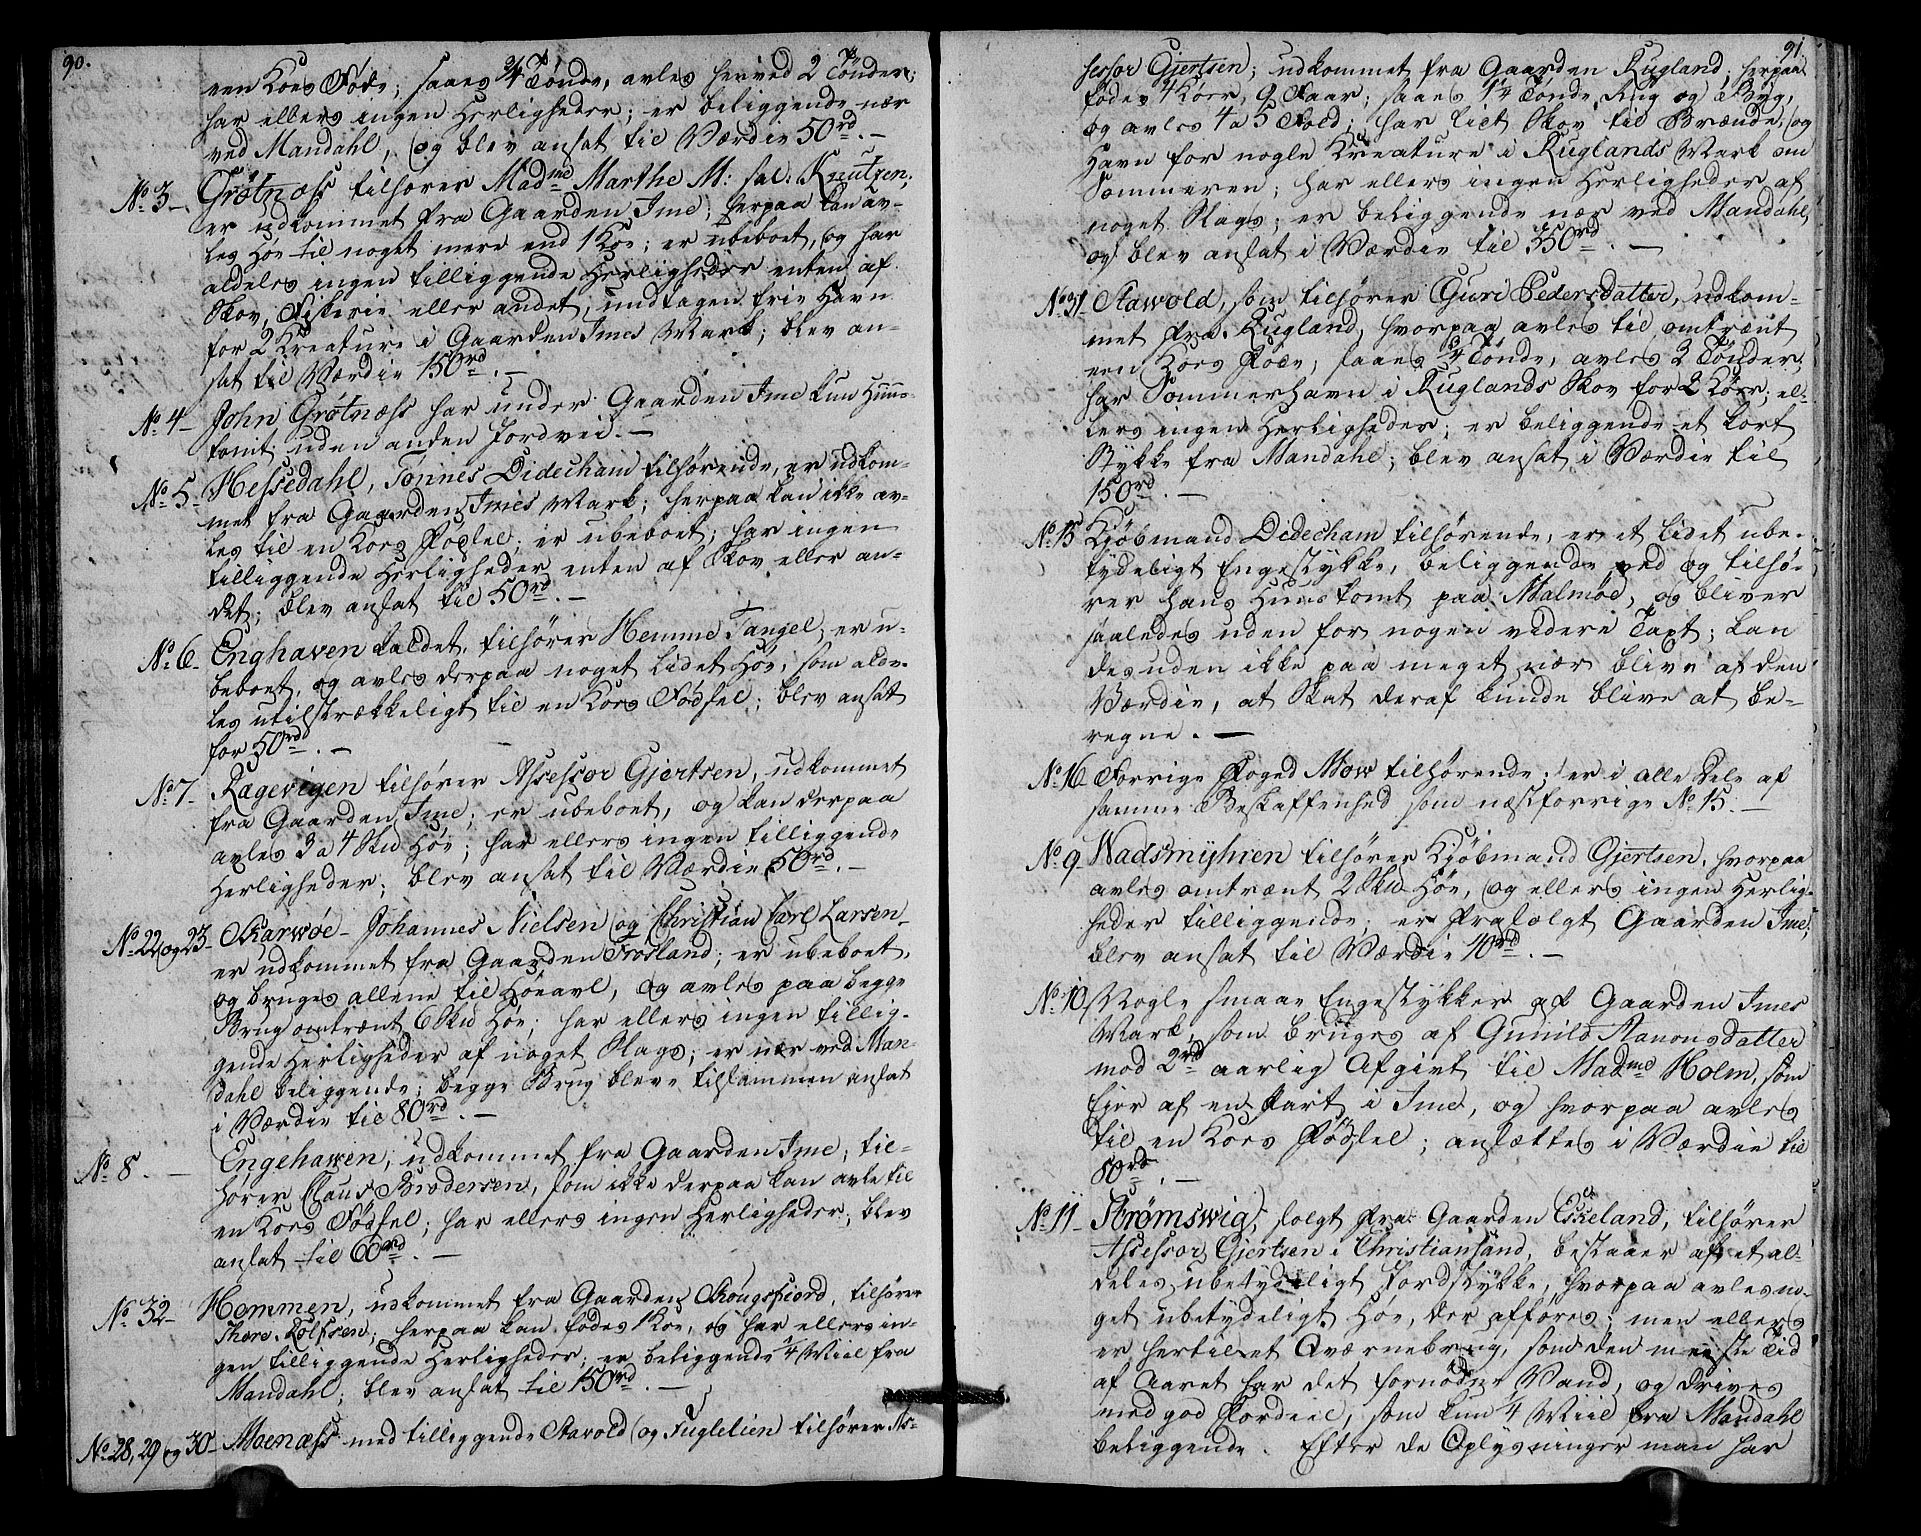 90.
een Koes Føde; saaes 3/4 Tønde, avles herved 2 Tønder;
har ellers ingen Herligheder; er beliggende nær
ved Mandahl, og blev ansat til Værdie 50 rd. –
No. 3 – Grøtnæss tilhører Madme Marthe M: sal: Knutzen;
er udkommet fra Gaarden Ime; herpaa kan av-
les Høe til noget mere end 1 Koe; er ubeboet, og har
aldeles ingen tilliggende Herligheder enten af
Skov, Fiskerie eller andet, undtagen frie Havn
for 2 Kreature i Gaarden Imes Mark; blev an-
sat til Værdie 150 rd. –
No. 4 – John Grøtnæss har under Gaarden Ime kun Huus-
tomt uden anden Jordvei. –
No. 5 – Hessedahl, Tønnes Didecham tilhørende, er udkom-
met fra Gaarden Imes Mark; herpaa kan ikke av-
les til en Koes Fødsel; er ubeboet; har ingen
tilliggende Herligheder enten af Skov eller an-
det; blev ansat til 50 rd. –
No. 6 – Enghaven kaldet, tilhører Hemme Tangel; er u-
beboet, og avles derpaa noget lidet Høe, som alde-
les utilstrækkeligt til en Koes Fødsel; blev ansat
for 50 rd. –
No. 7 – Rægevigen tilhører Assessor Gjertsen, udkommet
fra Gaarden Ime; er ubeboet, og kan derpaa
avles 3 a 4 Skd Høe; har ellers ingen tilliggende
Herligheder; blev ansat til Værdie 50 rd. –
No. 22 og 23 – Skarwøe – Johannes Nielsen og Christian Carl Larsen –
er udkommet fra Gaarden Frøsland; er ubeboet,
og bruges allene til Høeavl, og avles paa begge
Brug omtrent 6 Skd Høe; har ellers ingen tillig-
gende Herligheder af noget Slags; er nær ved Man-
dahl beliggende; begge Brug bleve tilsammen ansat
i Værdie til 80 rd. –
No. 8. – Engehawen, udkommet fra Gaarden Ime; til-
hører Claus Brodersen, som ikke derpaa kan avle til
en Koes Fødsel; har ellers ingen Herligheder; blev
ansat til 60 rd. –
No. 32 – Hommen, udkommet fra Gaarden Skougsfiord, tilhører
Thore Rolfsen; herpaa kan fødes 1 Koe, og har ellers in-
gen tilliggende Herligheder; er beliggende 1/4 Miil fra
Mandahl; blev ansat til 150 rd. –
No. 28, 29 og 30 – Moenæss med tilliggende Stavold og Fuglelien tilhører As-
91.
sessor Gjertsen; udkommet fra Gaarden Rugland; herpaa
fødes 4 Køer, 9 Faar; saaes 1 1/4 Tønde Rug og Byg,
og avles 4 a 5 Fold; har liet Skov til Brænde, og
Havn for nogle Kreature i Ruglands Mark om
Sommeren; har ellers ingen Herligheder af
noget Slags; er beliggende nær ved Mandahl,
og blev ansat i Værdie til 350 rd. –
No. 31 – Stawold, som tilhører Guri Pedersdatter, udkom-
met fra Rugland, hvorpaa avles til omtrent
een Koes Føde, saaes 3/4 Tønde, avles 3 Tønder,
har Sommerhavn i Ruglands Skov for 2 Køer; el-
lers ingen Herligheder; er beliggende et kort
Stykke fra Mandahl; blev ansat i Værdie til
150 rd. –
No. 15 Kjøbmand Didecham tilhørende, er et lidet ube-
tydeligt Engestykke, beliggende ved og tilhø-
rer hans Huustomt paa Malmøe, og bliver
saaledes uden for nogen videre Taxt; kan
desuden ikke paa meget nær blive af den
Værdie, at Skat deraf kunde blive at be-
regne. –
No. 16 Forrige Foged Mow tilhørende; er i alle Dele af
samme Beskaffenhed som næstforrige No. 15. –
No. 9 – Wadsmyhren tilhører Kjøbmand Gjertsen, hvorpaa
avles omtrent 2 Skd Høe, og ellers ingen Herlig-
heder tilliggende, er frasolgt Gaarden Ime;
blev ansat til Værdie 40 rd. –
No. 10 Nogle smaae Engestykker af Gaarden Imes
Mark, som bruges af Gunild Aanonsdatter
mod 2 rd aarlig Afgivt til Madme Holm, som
Eier af en Part i Ime, og hvorpaa avles
til en Koes Fødsel; ansættes i Værdie til
80 rd. –
No. 11 – Strømswig, solgt fra Gaarden Eskeland, tilhører
Assessor Gjertsen i Christiansand, bestaaer af et al-
deles ubetydeligt Jordstykke, hvorpaa avles no-
get ubetydeligt Høe, der afføres; men ellers
er hertil et Qværnebrug, som den meiste Tid
af Aaret har det fornødne Vand, og drives
med god Fordeel, som kun 1/4 Miil fra Mandahl
beliggende. Efter de Oplysninger man har